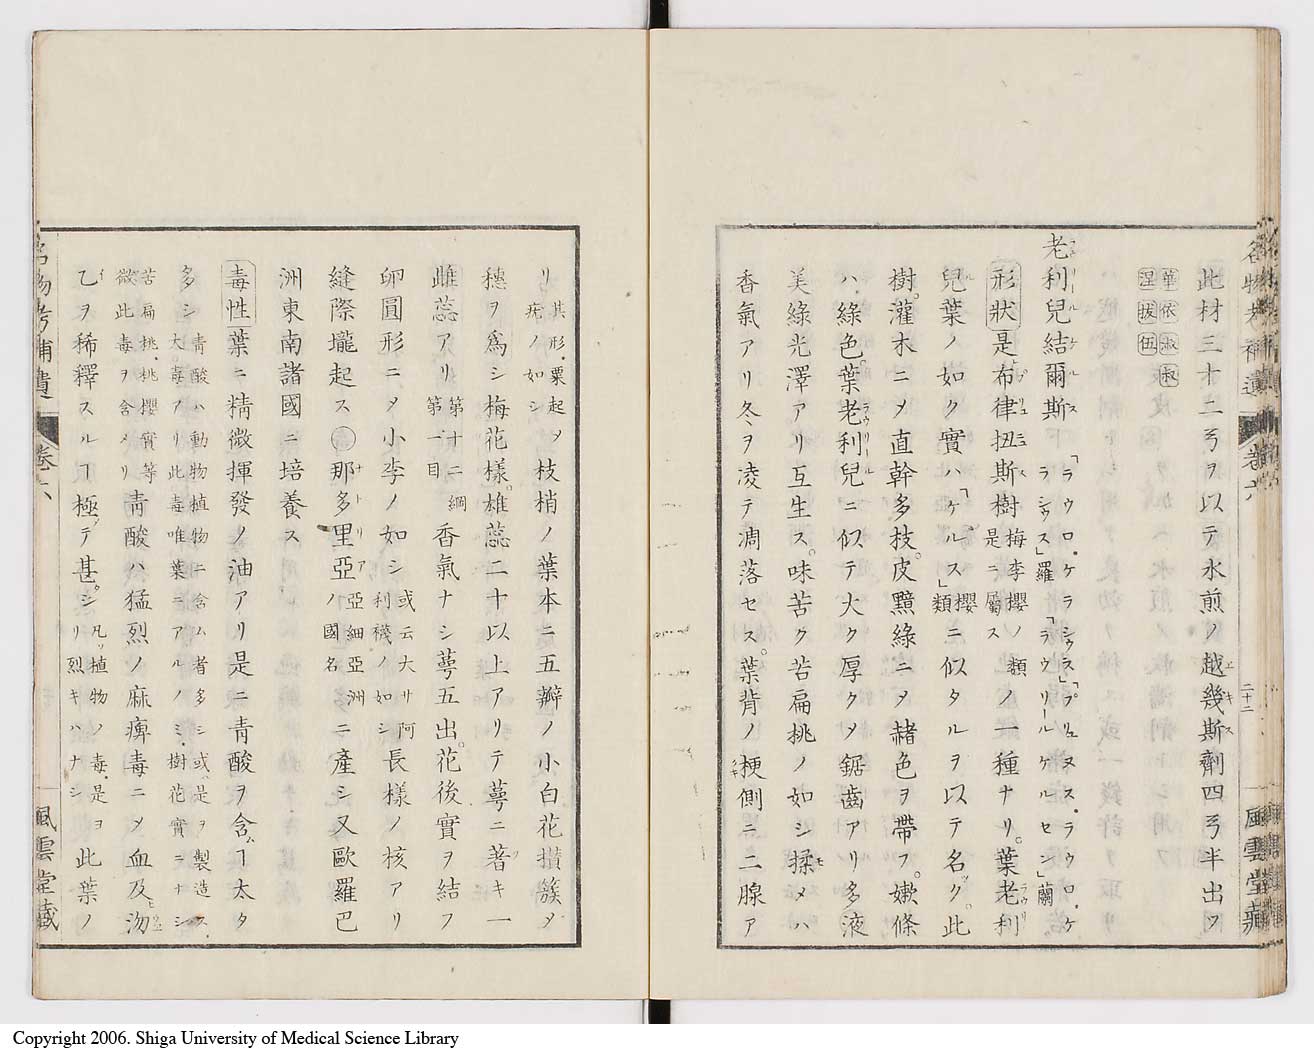 名物考補遺 卷六 二十二 風雲堂藏
此材三十二ヲ以テ水煎ノ越幾斯劑四半出ツ
華依
涅拔伍
老利兒結爾斯「ラウロ・ケラシウラ」「プリュヌス・ラウロ・ケラシウス」羅「ラウリールケルセン」蘭
形狀是布律扭斯樹梅李櫻ノ類是ニ屬スノ一種ナリ。葉老利
兒葉ノ如ク實ハ「ケルス」櫻類ニ似タルヲ以テ名ック。此
樹。灌木ニメ直幹多枝。皮黯綠ニメ赭色ヲ帶フ。嫩條
ハ綠色。葉老利兒ニ似テ大ク厚クメ鋸齒アリ多液
美綠光澤アリ互生ス。味苦ク苦扁桃ノ如シ揉メハ
香氣アリ冬ヲ凌テ凋落セス。葉背ノ梗側ニ二腺ア
リ其形・粟起メ疣ノ如シ枝梢ノ葉本ニ五瓣ノ小白花攢簇メ
穗ヲ爲シ梅花樣雄蕊二十以上アリテ萼ニ著キ一
雌蕊アリ第十二綱第一目香氣ナシ萼五出。花後實ヲ結フ
卵圓形ニメ小李ノ如シ或云大サ阿利襪ノ如シ長樣ノ核アリ
縫際壠起ス那多里亞亞細亞洲ノ國名ニ產シ又歐羅巴
洲東南諸國ニ培養ス
毒性葉ニ精微揮發ノ油アリ是ニ青酸ヲ含ヿ太タ
多シ青酸ハ動物植物ニ含ム者多シ或ハ是ヲ製造ス、大毒アリ此毒唯葉ニアルノミ・樹花實ニナシ
苦扁桃、桃櫻實等微此毒ヲ含メリ青酸ハ猛烈ノ麻痺毒ニメ血及沕
乙ヲ稀釋スルヿ極テ甚。シ凡ソ植物ノ毒・是ヨリ烈キハナシ此葉ノ
名物考補遺 卷六 風雲堂藏
Copyright 2006. Shiga University of Medical Science Library